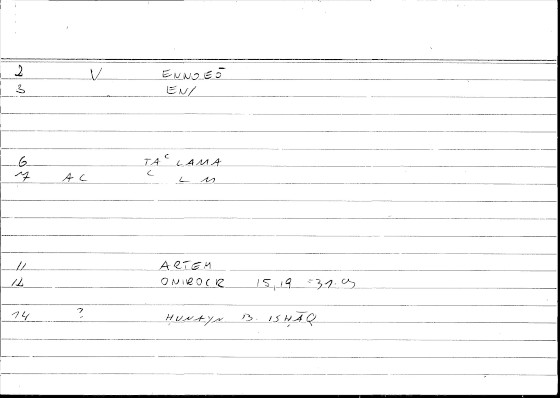 2 V ENNOEŌ
3 EN/
6 TAʿLAMA
7 AC ʿ L M
11 ARTEM
12 ONIROCR 15,19 =31.
14 ? ḤUNAYN B. ISḤĀQ